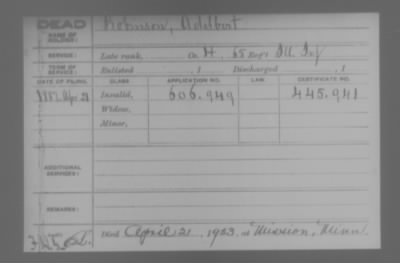 DEAD Robinson, Adelbert
NAME OF SOLDIER:
SERVICE: Late rank, Co. H, 65 Reg't Ill. Inf
TERM OF SERVICE: Enlisted , 1 Discharged , 1
DATE OF FILING. CLASS. APPLICATION NO. LAW. CERTIFICATE NO.
1887 Apr 21 Invalid, 606.949 445.941
Widow,
Minor,
ADDITIONAL SERVICES:
REMARKS:
Died April 21, 1923, at Mission, Minn.